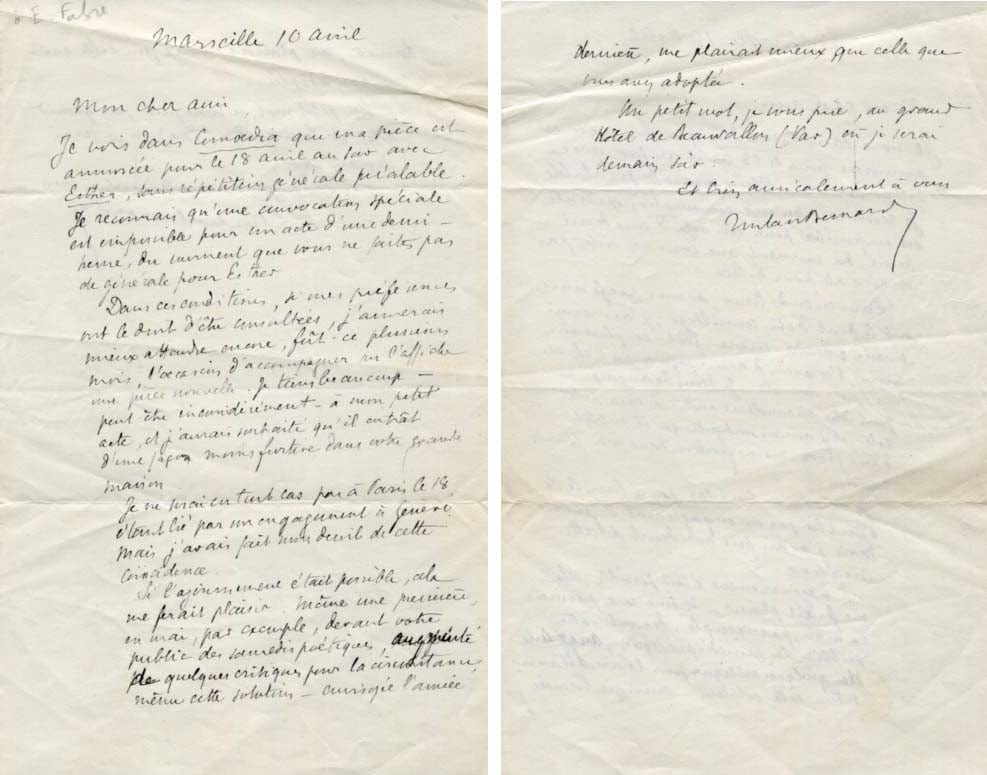 à E. Fabre
Marseille 10 avril
Mon cher ami,
Je vois dans Comœdia que ma pièce est
annoncée pour le 18 avril au soir avec
Esther, sans répétition générale préalable.
Je reconnais qu'une convocation spéciale
est impossible pour un acte d'une demi-
heure, du moment que vous ne faites pas
de générale pour Esther
Dans ces conditions, si mes préférences
ont le droit d'être consultées, j'aimerais
mieux attendre encore, fût-ce plusieurs
mois, l'occasion d'accompagner sur l'affiche
une pièce nouvelle. Je tiens beaucoup –
peut-être inconsidérément – à mon petit
acte, et j'aurais souhaité qu'il entrât
d'une façon moins furtive dans votre grande
maison
Je ne serai en tout cas pas à Paris le 18,
étant lié par un engagement à Genève.
Mais j'avais fait mon deuil de cette
coïncidence.
Si l'ajournement était possible, cela
me ferait plaisir. Même une première,
en mai, par exemple, devant votre
public des samedis poétiques augmenté
de quelques critiques pour la circonstance,
même cette solution – envisagée l'année
dernière, me plairait mieux que celle que
vous avez adoptée.
Un petit mot, je vous prie, au grand
Hôtel de Beauvallon (Var) où je serai
demain soir.
Et bien amicalement à vous
Tristan Bernard